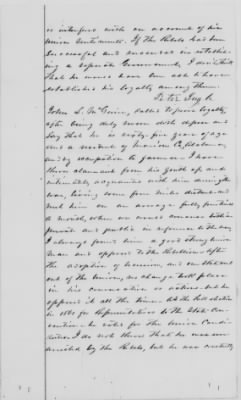 or interfere with on account of his
Union Sentiments. If the Rebels had been
Successful and succeeded in establish-
ing a separate Government, I don't think
that he would have been able to have
established his loyalty among them.
John S. McGuire, called to prove loyalty
after being duly sworn doth depose and
Say that he is sixty-five years of age
and a resident of County,
and by occupation a farmer. I have
known claimant from his youth up and
intimately acquainted with him during the
war, living some miles distant and
met him on an average fully
a month, when we would converse both in
private and public in reference to the war,
I always found him a good strong Union
man and opposed to the Rebellion. After
the adoption of Secession, and
out of the Union, no change took place
in his conversation or actions, but he
opposed it all the time. At the Election
in 1861 for Representatives to the State Con-
vention he voted for the Union Candi-
dates. I do not know that he was ever
arrested by the Rebels, but he was